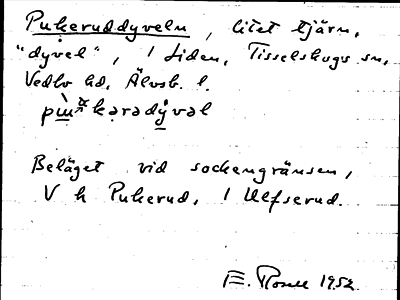 Pukeruddyveln, litet tjärn,
"dyvel", 1 Liden, Tisselskogs sn,
Vedbo hd, Älvsb. l.
Beläget vid sockengränsen,
V h Pukerud, 1 Ulfserud.
E. 1952